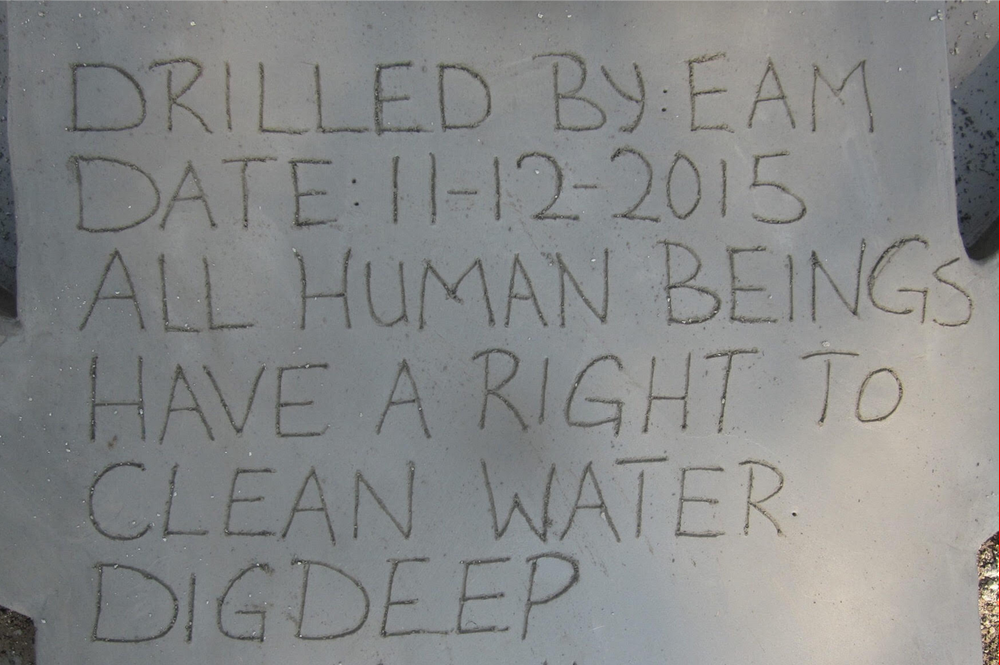 DRILLED BY: EAM
DATE: 11-12-2015
ALL HUMAN BEINGS
HAVE A RIGHT TO
CLEAN WATER
DIGDEEP